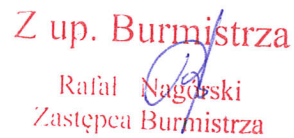 Z up. Burmistrza
Rafał Nagórski
Zastępca Burmistrza